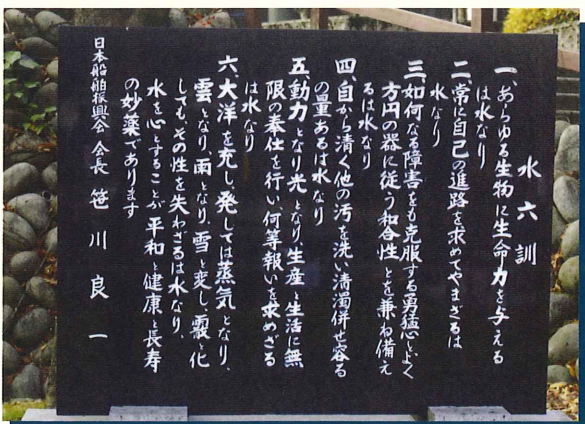 水六訓
一、あらゆる生物に生命力を与える
は水なり
二、常に自己の進路を求めてやまざるは
水なり
三、如何なる障害をも克服する勇猛心とよく
方円の器に従う和合性とを兼ね備え
るは水なり
四、自から清く他の汚を洗い清濁併せ容る
の量あるは水なり
五、動力となり光となり、生産と生活に無
限の奉仕を行い何等報いを求めざる
は水なり
六、大洋を充し、発しては蒸気となり、
雲となり、雨となり、雪と変し、霰と化
しても、その性を失わざるは水なり、
水を心とすることが平和と健康と長寿
の妙薬であります
日本船舶振興会 会長 笹川良一